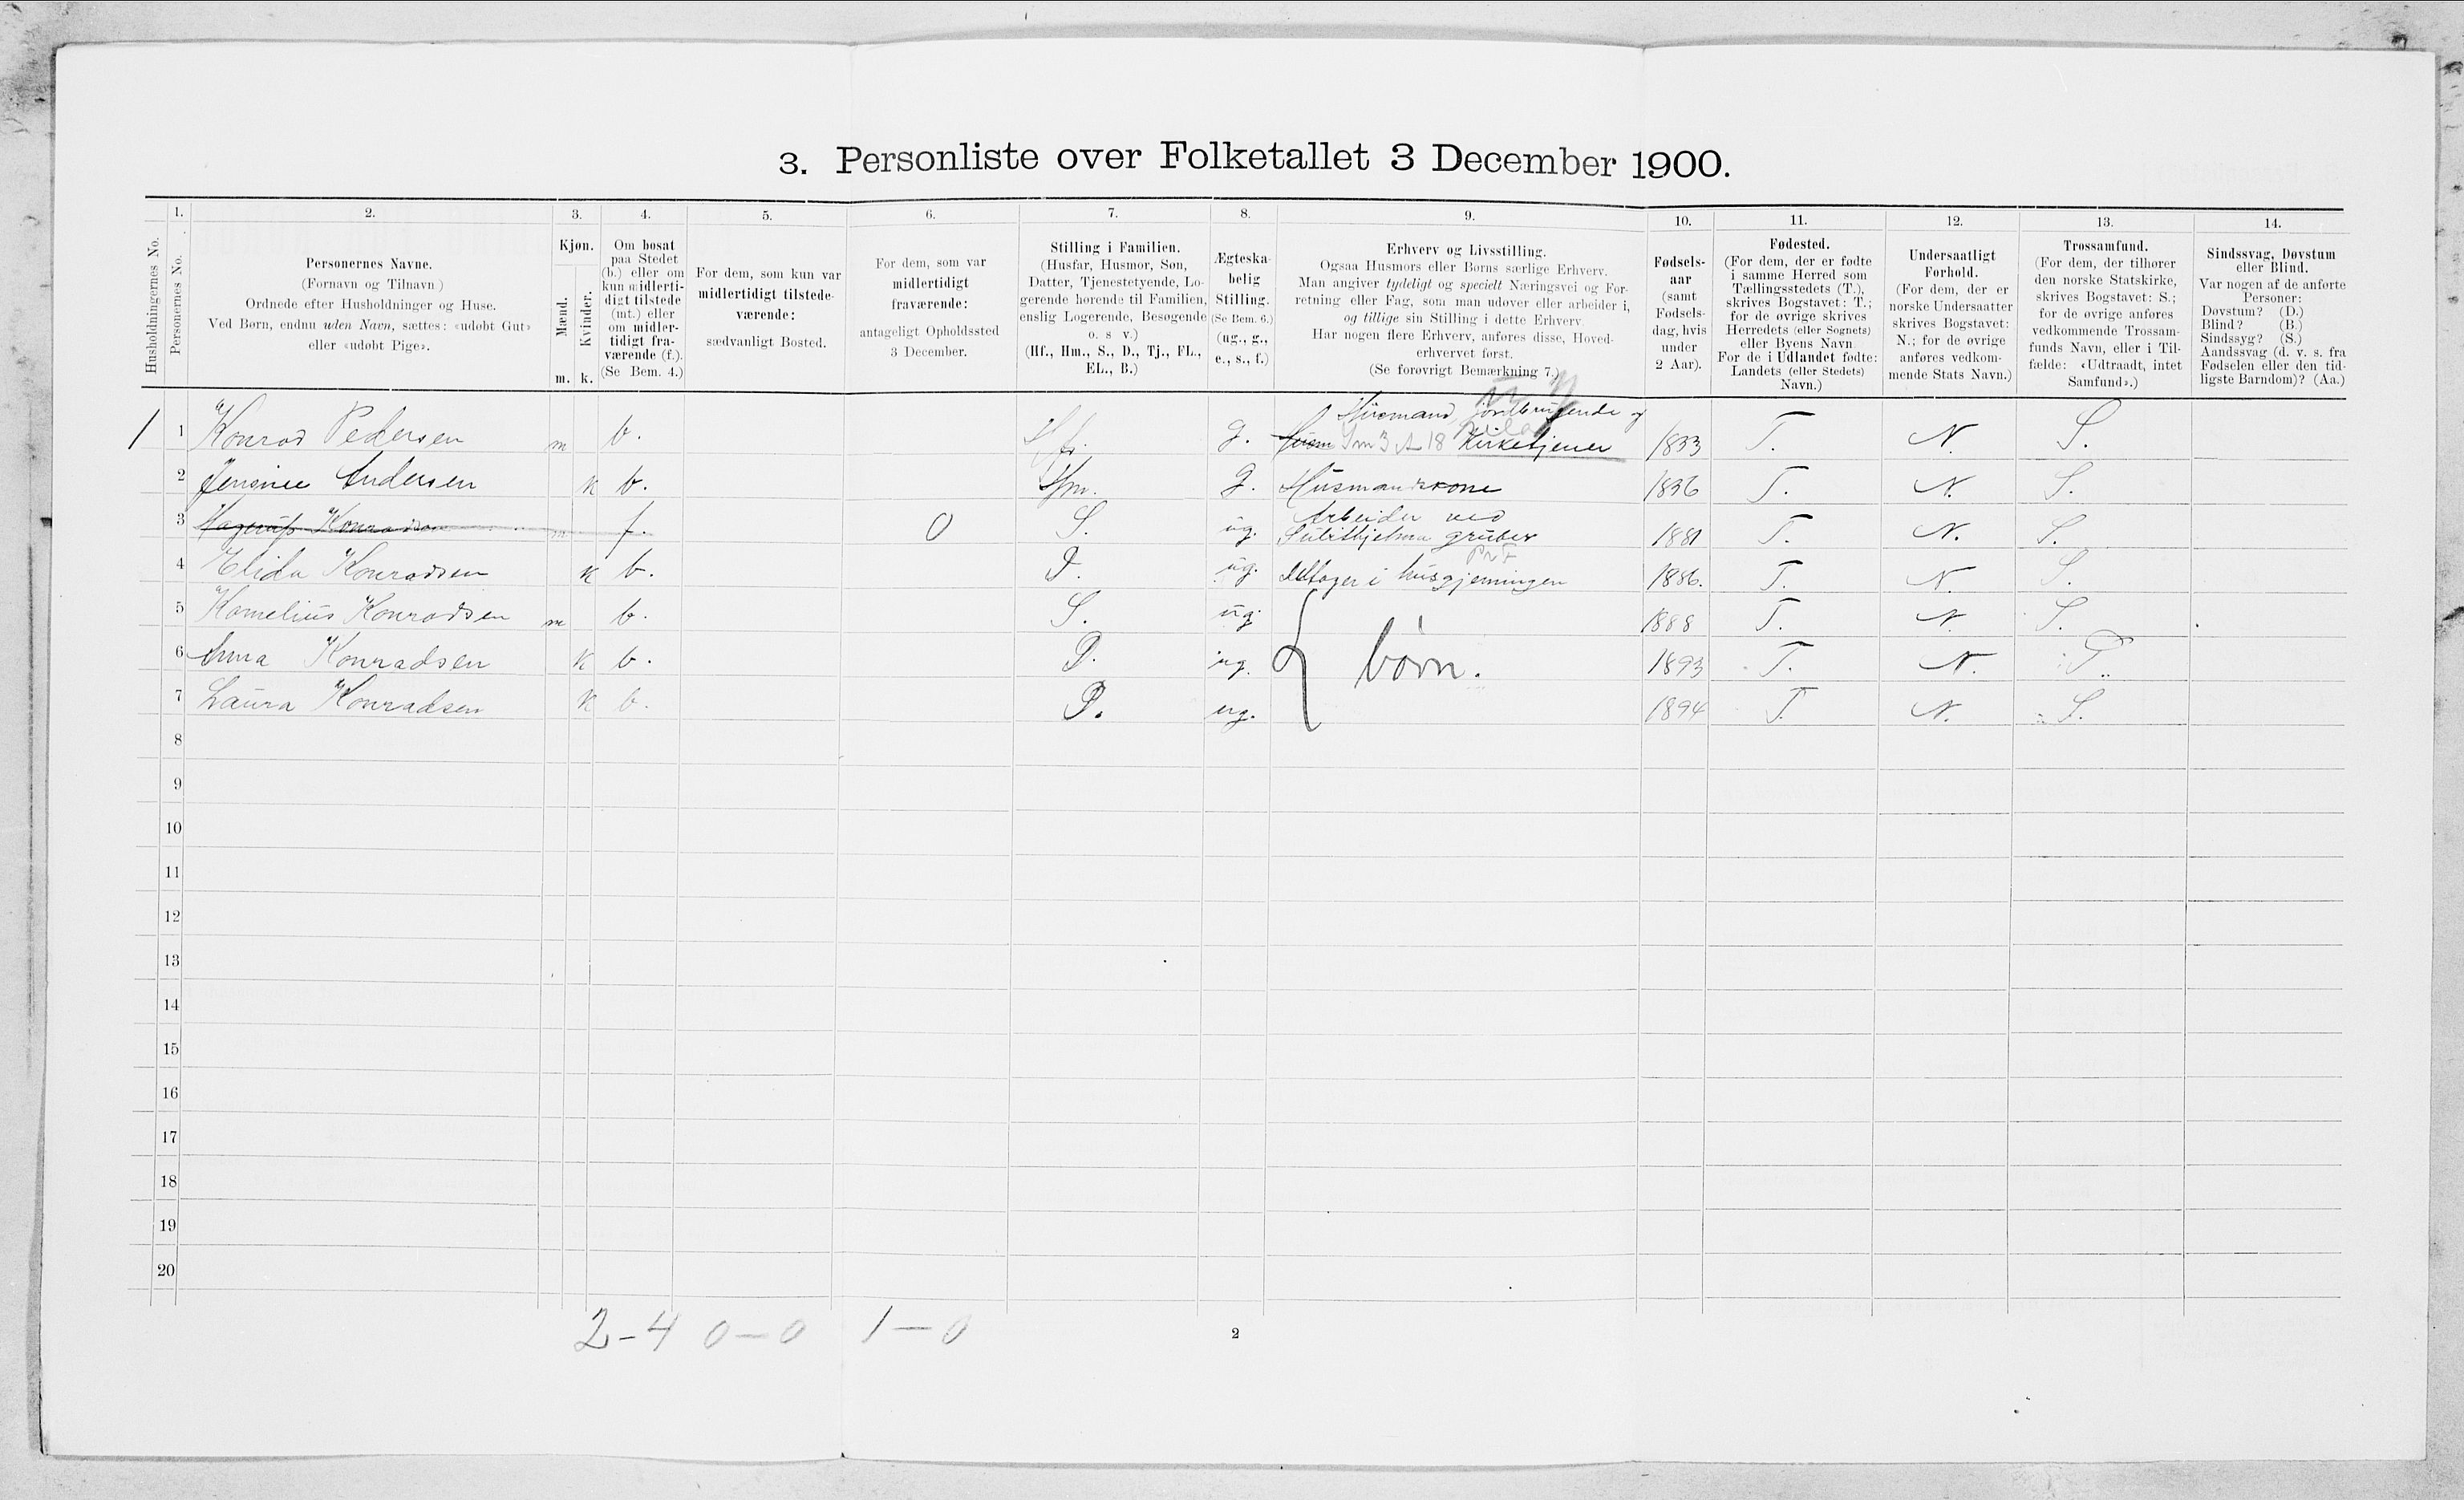 3. Personliste over Folketallet 3 December 1900.
1. 2. 3. 4. 5. 6. 7. 8. 9. 10. 11. 12. 13. 14.
Husholdningernes No.
Personernes No.
Personernes Navne.
(Fornavn og Tilnavn)
Ordnede efter Husholdninger og Huse.
Ved Børn, endnu uden Navn, sættes: «udøbt Gut»
eller «udøbt Pige».
Kjøn.
Mænd.
Kvinder.
m. k.
Om bosat
paa Stedet
(b.) eller om
kun midlerti-
digt tilstede
(mt.) eller
om midler-
tidigt fra-
værende (f.).
(Se Bem. 4.)
For dem, som kun var
midlertidigt tilstede-
værende:
sædvanligt Bosted.
For dem, som var
midlertidigt
fraværende:
antageligt Opholdssted
3 December.
Stilling i Familien.
(Husfar, Husmor, Søn,
Datter, Tjenestetyende, Lo-
gerende hørende til Familien,
enslig Logerende, Besøgende
o. s. v.)
(Hf., Hm., S., D., Tj., FL.,
EL., B.)
Ægteska-
belig
Stilling.
(Se Bem. 6.)
(ug., g.,
e., s., f.)
Erhverv og Livsstilling.
Ogsaa Husmors eller Børns særlige Erhverv.
Man angiver tydeligt og specielt Næringsvei og For-
retning eller Fag, som man udøver eller arbeider i,
og tillige sin Stilling i dette Erhverv.
Har nogen flere Erhverv, anføres disse, Hoved-
erhvervet først.
(Se forøvrigt Bemærkning 7.)
Fødsels-
aar
(samt
Fødsels-
dag, hvis
under
2 Aar).
Fødested.
(For dem, der er fødte
i samme Herred som
Tællingsstedets (T.),
skrives Bogstavet: T.;
for de øvrige skrives
Herredets (eller Sognets)
eller Byens Navn
For de i Udlandet fødte:
Landets (eller Stedets)
Navn.)
Undersaatligt
Forhold.
(For dem, der er
norske Undersaatter
skrives Bogstavet:
N.; for de øvrige
anføres vedkom-
mende Stats Navn.)
Trossamfund.
(For dem, der tilhører
den norske Statskirke,
skrives Bogstavet: S.;
for de øvrige anføres
vedkommende Trossam-
funds Navn, eller i Til-
fælde: «Udtraadt, intet
Samfund».)
Sindssvag, Døvstum
eller Blind.
Var nogen af de anførte
Personer:
Døvstum? (D.)
Blind? (B.)
Sindssyg? (S.)
Aandssvag (d. v. s. fra
Fødselen eller den tid-
ligste Barndom)? (Aa.)
Husmand, jordbrugende og
1 1 Konrad Pedersen m b. Hf. g. Husm Sm 3 A 18 Kirketjener 1833 T. N. S.
2 Jensine Andersen k b. Hm. g. Husmandskone 1836 T. N. S.
Arbeider ved
3 Hagerup Konradsen m f. 0 S. ug. Sulithjelma gruber 1881 T. N. S.
4 Elida Konradsen k b. D. ug. deltager i husgjerningen 1886. T. N. S.
5 Kornelius Konradsen m b. S. ug. 1888 T. N. S.
6 Anna Konradsen k b. D. ug. børn. 1893 T. N. S.
7 Laura Konradsen k b. D. ug. 1894 T. N. S.
8
9
10
11
12
13
14
15
16
17
18
19
20
2-4 0-0 1-0
2